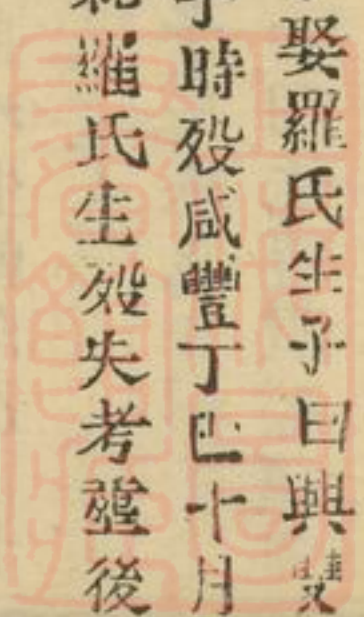 娶羅氏生子曰興
時殁咸豐丁巳十月
羅氏生殁失考塟後